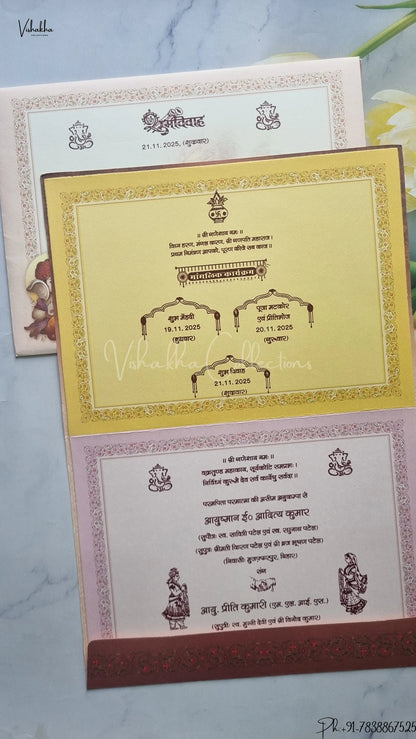 Vishakha
COLLECTIONS
श्रीविवाह
21.11.2025, (शुक्रवार)
॥ श्री गणेशाय नमः ॥
विघ्न हरण, मंगल करण, श्री गणपति महाराज।
प्रथम निमंत्रण आपको, पूरण कीजै सब काज॥
मांगलिक कार्यक्रम
शुभ मेंहदी
19.11.2025
(बुधवार)
पूजा मटकोर
एवं प्रीतिभोज
20.11.2025
(गुरुवार)
Vishakha Collections
शुभ विवाह
21.11.2025
(शुक्रवार)
॥ श्री गणेशाय नमः ॥
वक्रतुण्ड महाकाय, सूर्यकोटि समप्रभः।
निर्विघ्नं कुरूमे देव सर्व कार्येषु सर्वदा॥
परमपिता परमात्मा की असीम अनुकम्पा से
आयुष्मान ई० आदित्य कुमार
(सुपौत्रः स्व. सावित्री पटेल एवं स्व. रघुनाथ पटेल)
(सुपुत्रः श्रीमती किरण पटेल एवं श्री ब्रज भूषण पटेल)
(निवासीः मुजफ्फरपुर, बिहार)
संग
आयु. प्रीति कुमारी (एम. एस. आई. एस.)
(सुपुत्रीः स्व. मुन्नी देवी एवं श्री विनोद कुमार)
Ph.+91-7838867525